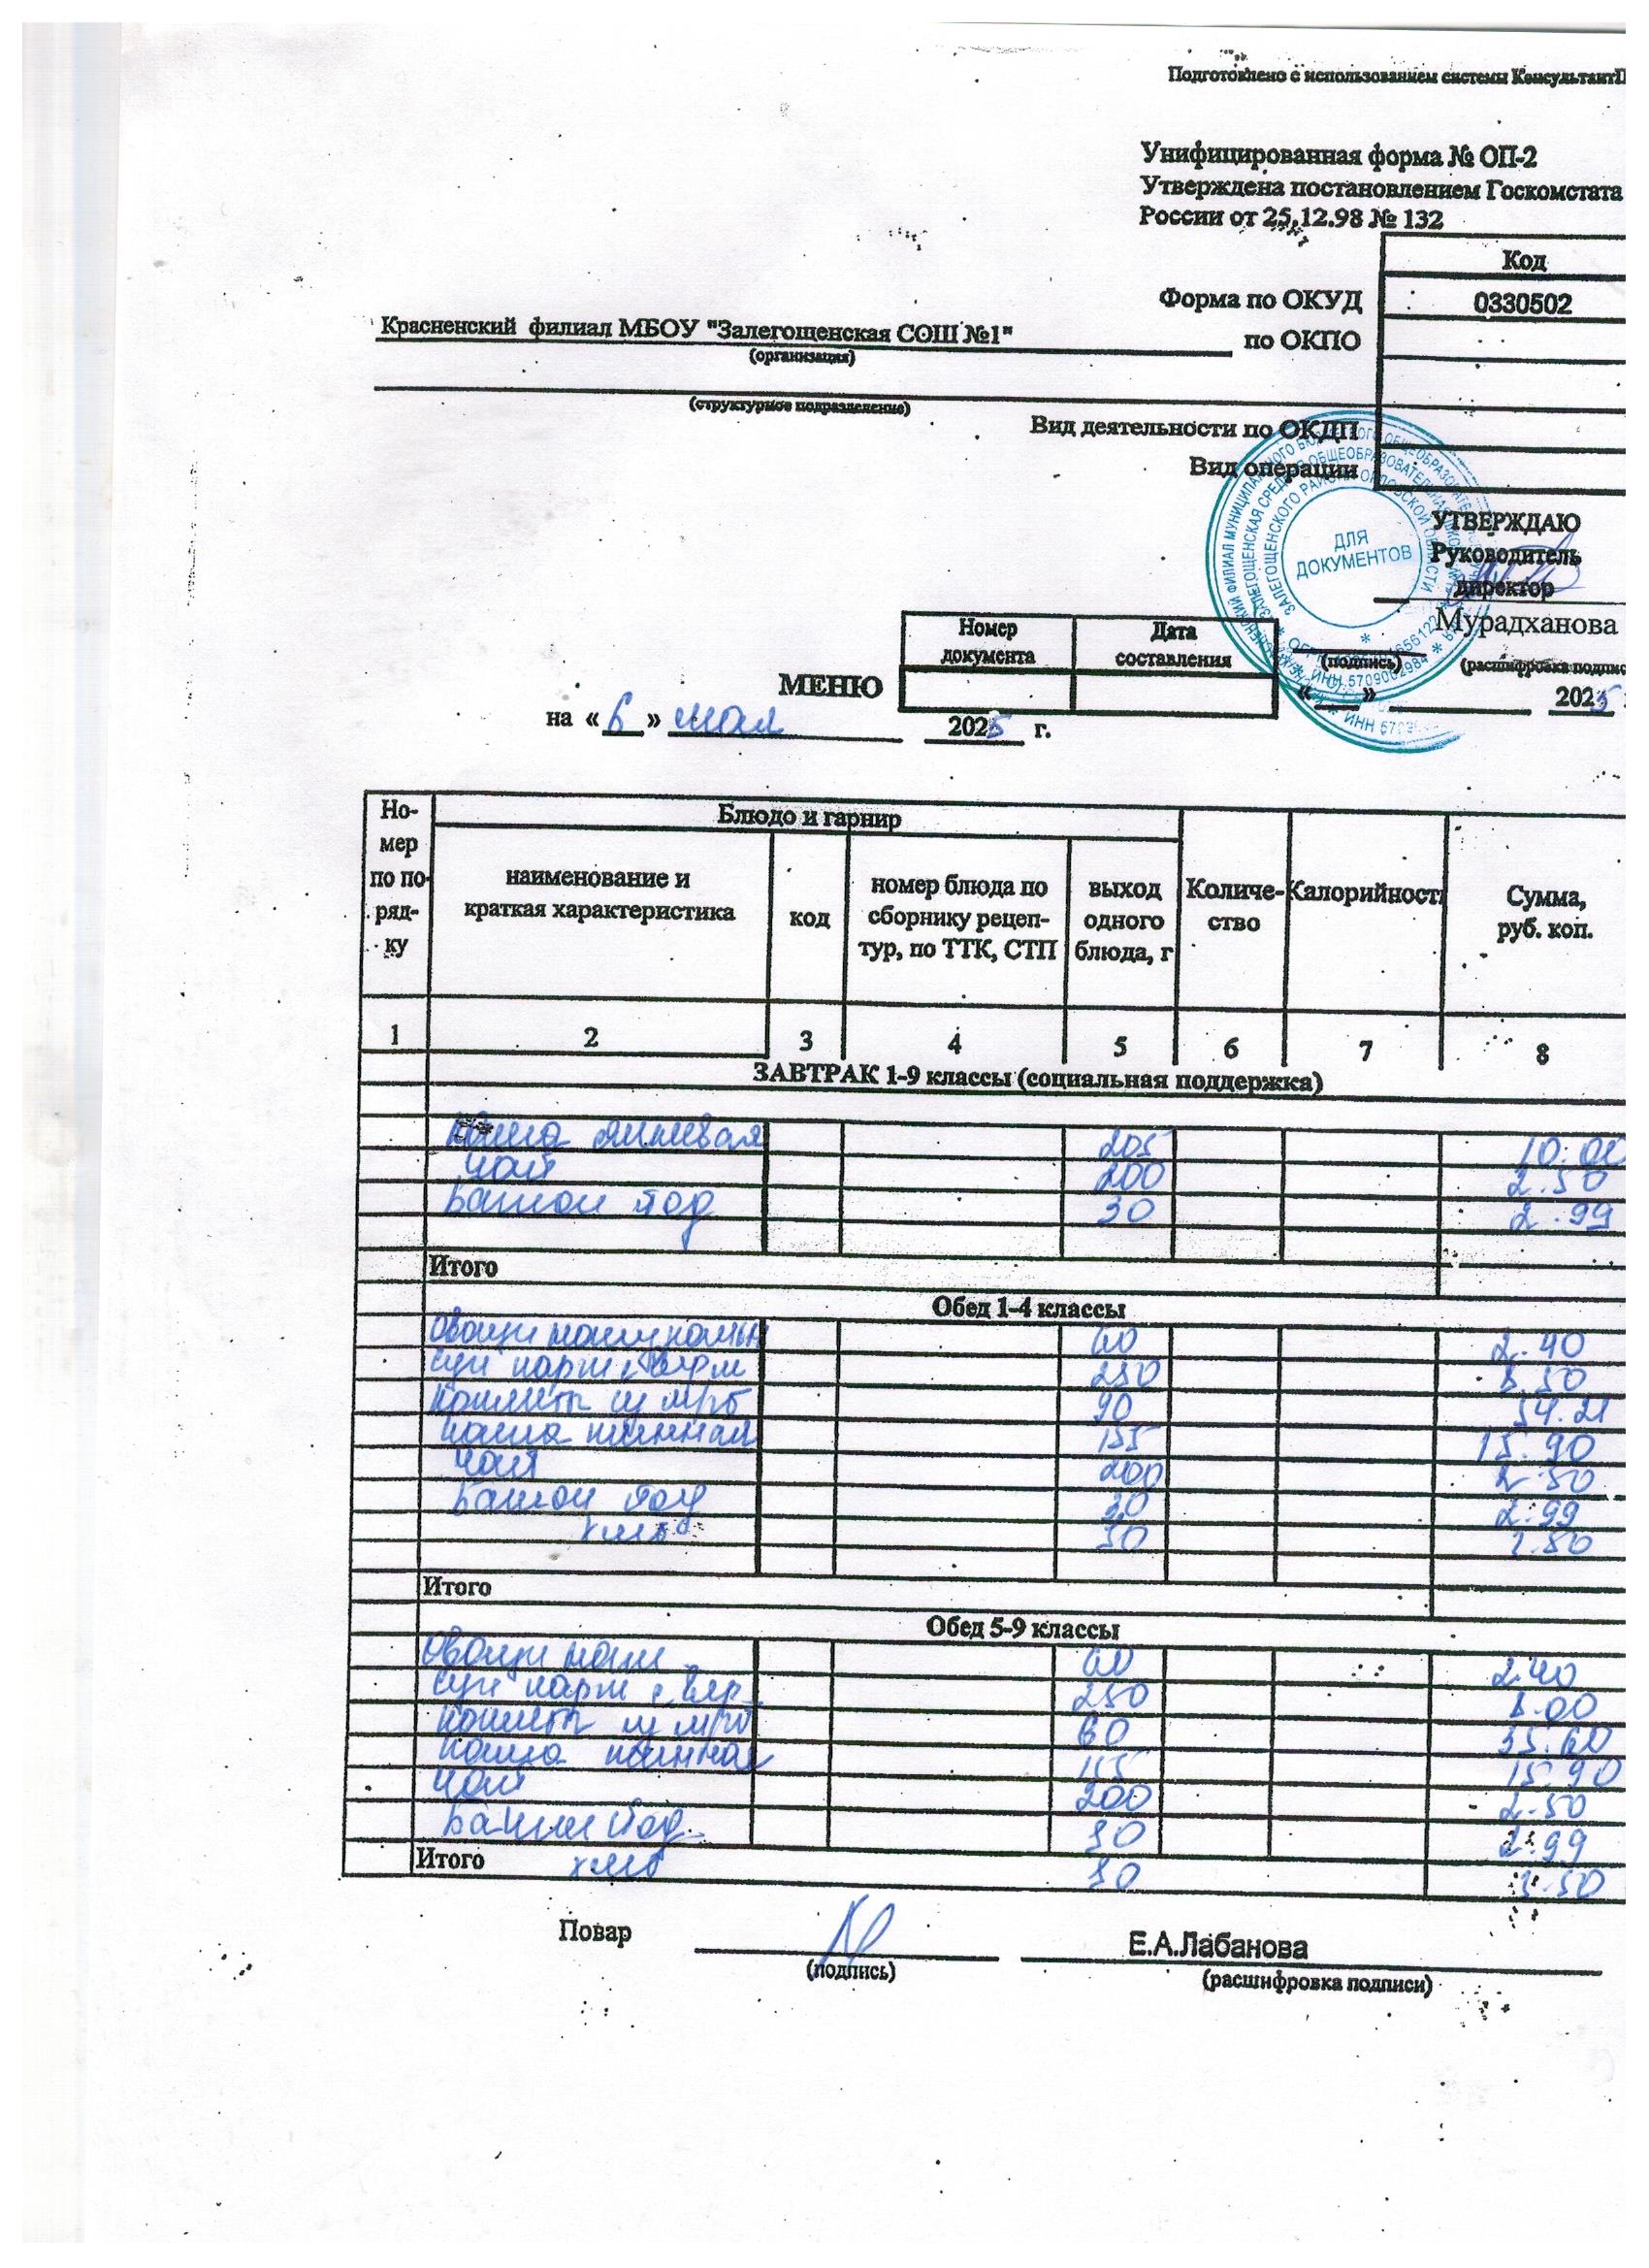 Подготовлено с использованием системы КонсультантП
Унифицированная форма № ОП-2
Утверждена постановлением Госкомстата
России от 25.12.98 № 132
Код
Форма по ОКУД 0330502
Красненский филиал МБОУ "Залегощенская СОШ №1" по ОКПО
(организация)
(структурное подразделение)
Вид деятельности по ОКДП
Вид операции
УТВЕРЖДАЮ
ДЛЯ ДОКУМЕНТОВ
Руководитель
директор
Мурадханова
(подпись) (расшифровка подпис
Номер документа Дата составления
МЕНЮ
« » 2025
на « 6 » мая 2025 г.
Но-мер по по-ряд-ку Блюдо и гарнир Количе-ство Калорийность Сумма, руб. коп.
наименование и краткая характеристика код номер блюда по сборнику рецеп-тур, по ТТК, СТП выход одного блюда, г
1 2 3 4 5 6 7 8
ЗАВТРАК 1-9 классы (социальная поддержка)
Каша 205 10.00
чай 200 2.50
Батон йод 30 2.99
Итого
Обед 1-4 классы
Овощи 60 2.40
Суп карт с верм 250 8.50
котлет 90 54.21
каша 155 15.90
чай 200 2.50
Батон йод 30 2.99
хлеб 30
Итого
Обед 5-9 классы
Овощи 60 2.40
Суп карт с вер 250 8.00
котлет 60 35.60
каша 155 15.90
чай 200 2.50
Батон йод 30 2.99
Итого хлеб 30
Повар Е.А.Лабанова
(подпись) (расшифровка подписи)